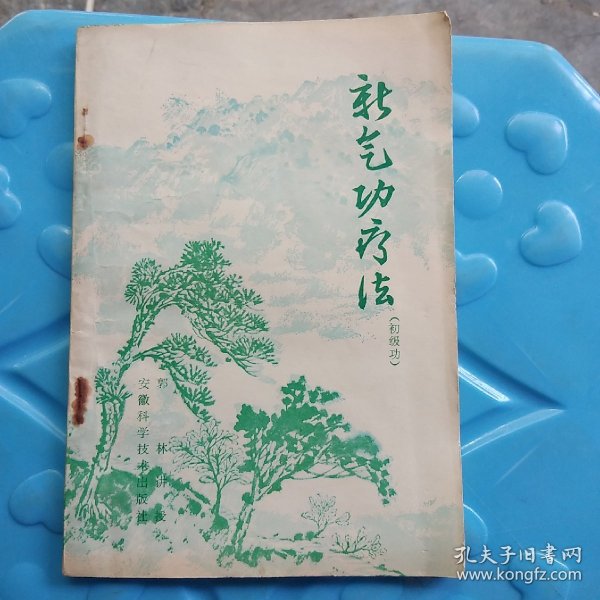 新气功疗法
(初级功)
郭林讲授
安徽科学技术出版社
孔夫子旧书网
www.kongfz.com